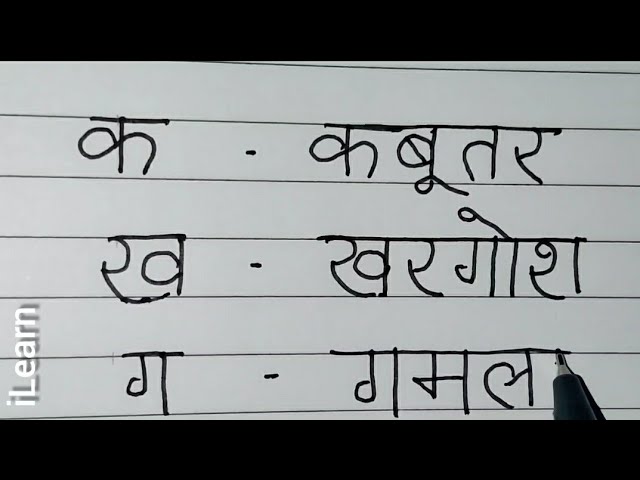 क - कबूतर
ख - खरगोश
ग - गमल
iLearn